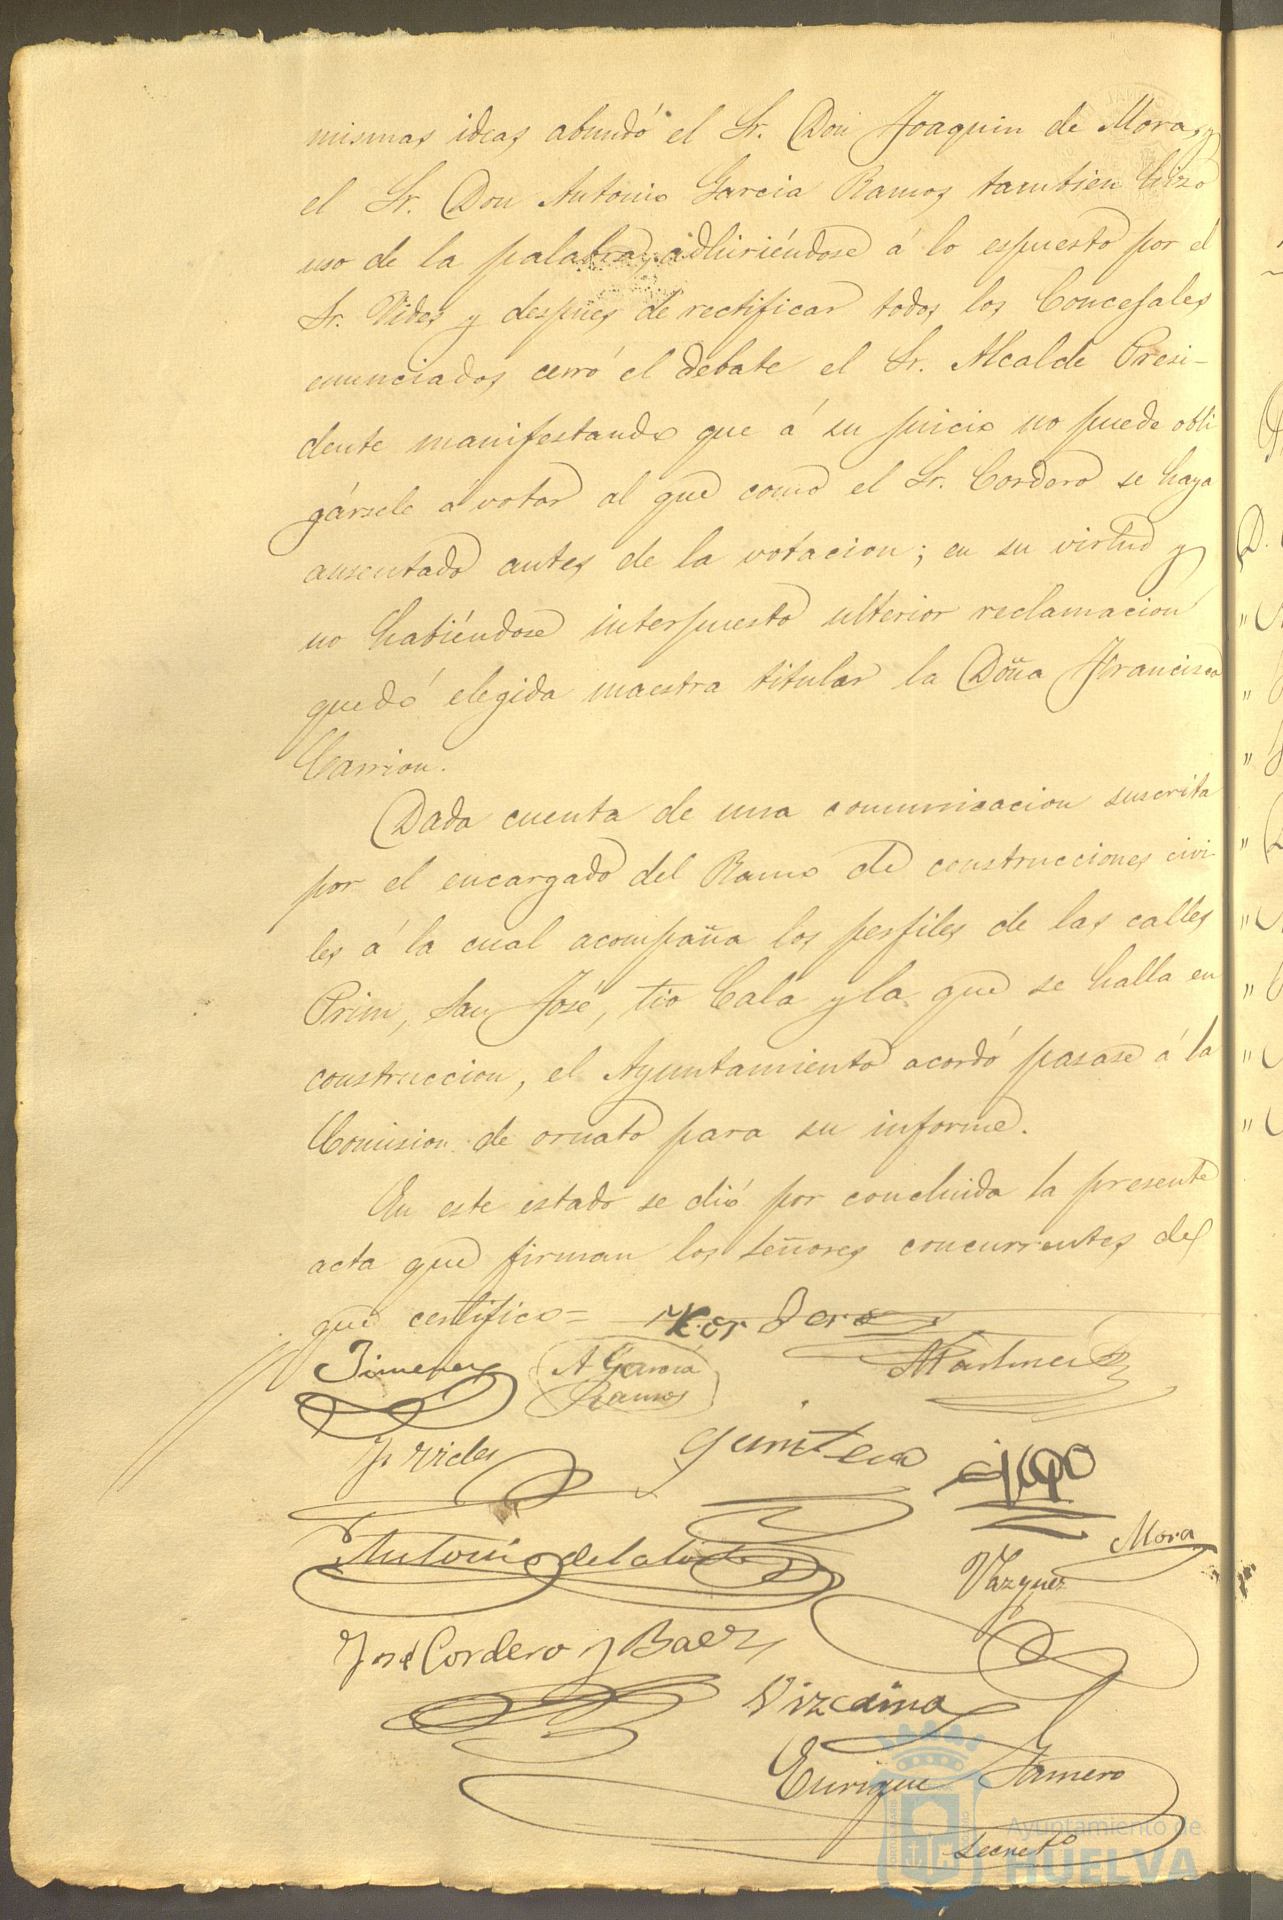 mismas ideas abundó el Sr. Don Joaquin de Mora, y
el Sr. Don Antonio Garcia Ramos tambien hizo
uso de la palabra, adhiriéndose á lo espuesto por el
Sr. Vides y despues de rectificar todos los Concejales
enunciados cerró el debate el Sr. Alcalde Presi-
dente manifestando que á su juicio no puede obli
gársele á votar al que como el Sr. Cordero se haya
ausentado antes de la votacion; en su virtud y
no habiéndose interpuesto ulterior reclamacion
quedó elegida maestra titular la Doña Francisca
Carrion.
Dada cuenta de una comunicacion suscrita
por el encargado del Ramo de construcciones civi-
les á la cual acompaña los perfiles de las calles
Prim, San José, tio Cala y la que se halla en
construccion, el Ayuntamiento acordó pasase á la
Comision de ornato para su informe.
En este estado se dió por concluida la presente
acta que firman los señores concurrentes de
que certifico=
Jimenez
A Garcia
Ramos
Martinez
J. Vides
Quintero
Antonio de la
Mora
Vazquez
José Cordero y Baez
Vizcaino
Enrique
Secret.o
Ayuntamiento de
HUELVA